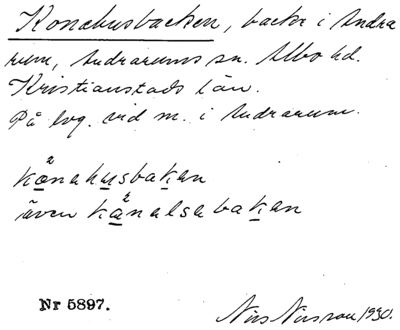 Konahusbacken, backe i Andra
rum, Andrarums sn. Albo hd.
Kristianstads län.
På lvg. vid m. i Andrarum.
kånahusbakan
även kånalsabakan
Nr 5897.
Nils Nilsson 1930.